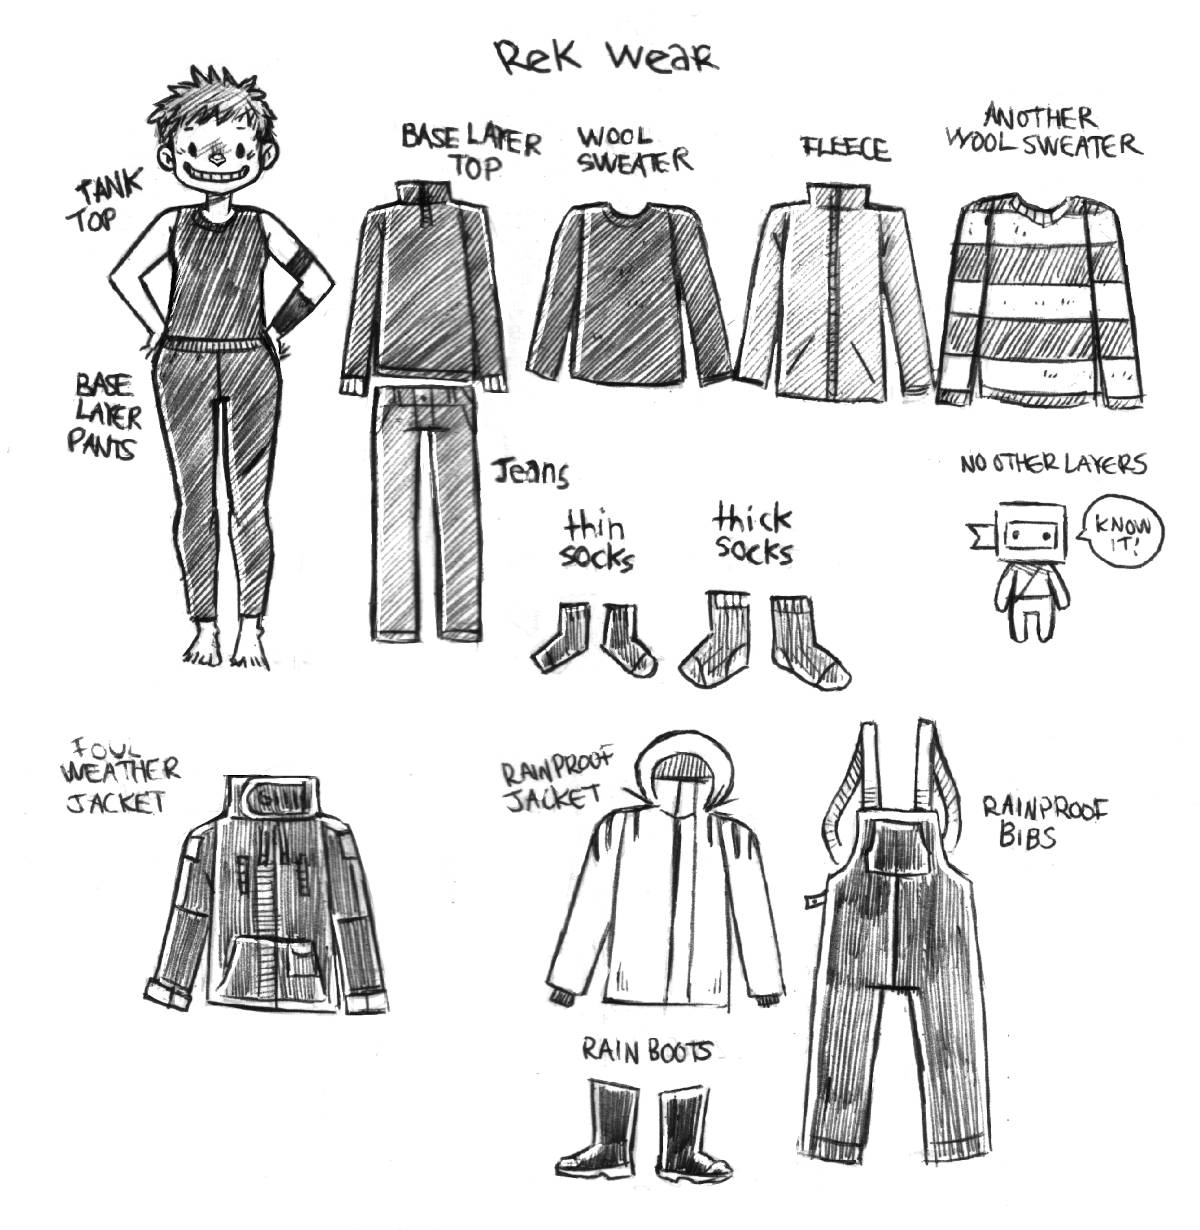 Rek Wear
TANK
TOP
BASE LAYER
TOP
WOOL
SWEATER
FLEECE
ANOTHER
WOOL SWEATER
BASE
LAYER
PANTS
Jeans
thin
socks
thick
socks
NO OTHER LAYERS
KNOW
IT!
FOUL
WEATHER
JACKET
RAINPROOF
JACKET
RAINPROOF
BIBS
RAIN BOOTS